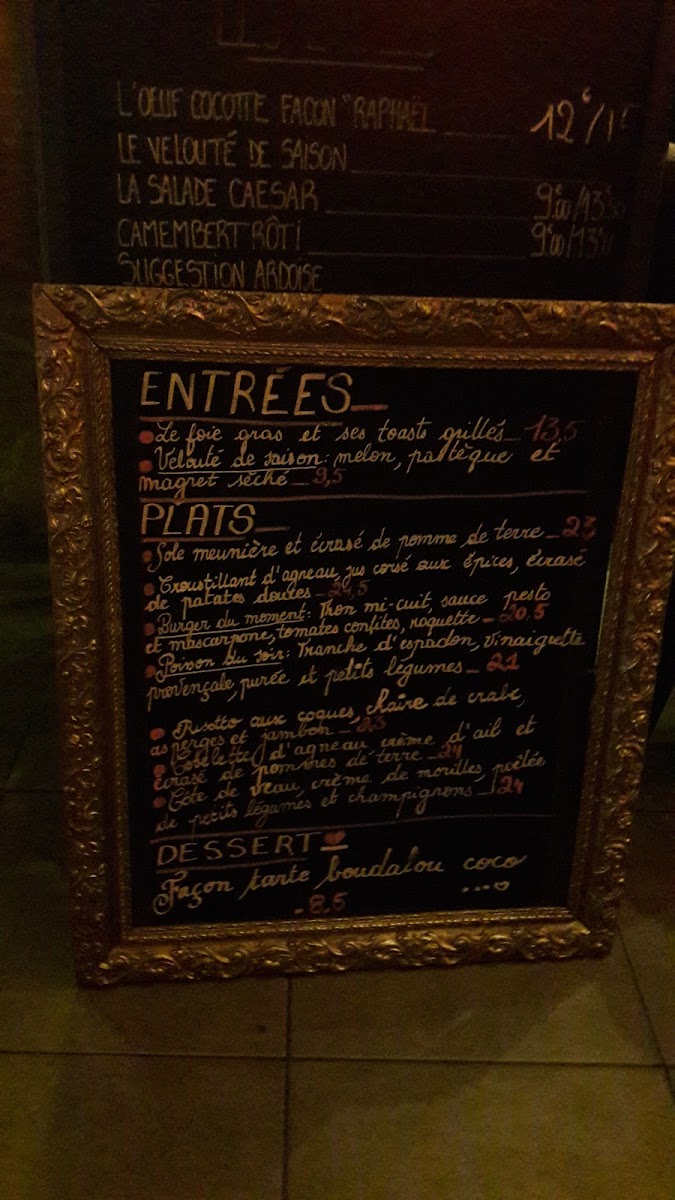 L'OEUF COCOTTE FACON "RAPHAËL 12€/15
LE VELOUTÉ DE SAISON
LA SALADE CAESAR 9€00/13€50
CAMEMBERT RÔTI 9€00/13€50
SUGGESTION ARDOISE
ENTRÉES
Le foie gras et ses toasts grillés 13,5
Velouté de saison: melon, pastèque et
magret séché 9,5
PLATS
Sole meunière et écrasé de pomme de terre 23
Croustillant d'agneau, jus corsé aux épices, écrasé
de patates douces 24,5
Burger du moment: Thon mi-cuit, sauce pesto
et mascarpone, tomates confites, roquette 20,5
Poisson du soir: Tranche d'espadon, vinaigrette
provençale, purée et petits légumes 21
Risotto aux coques, chaire de crabe,
asperges et jambon 23
Cotelette d'agneau crème d'ail et
écrasé de pommes de terre 24
Côte de veau, crème de morilles, poêlée
de petits légumes et champignons 24
DESSERT
Façon tarte boudalou coco
...
8,5